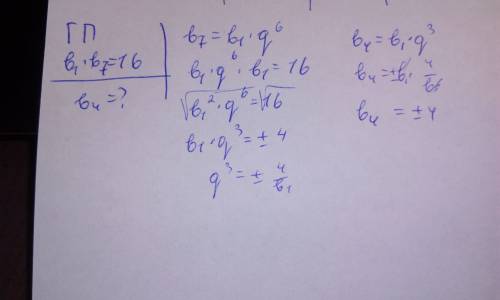 ГП
b₁·b₇=16
b₄=?
b₇=b₁·q⁶
b₁·q⁶·b₁=16
√b₁²·q⁶=√16
b₁·q³=±4
q³=±4/b₁
b₄=b₁·q³
b₄=±b₁·4/b₁
b₄=±4